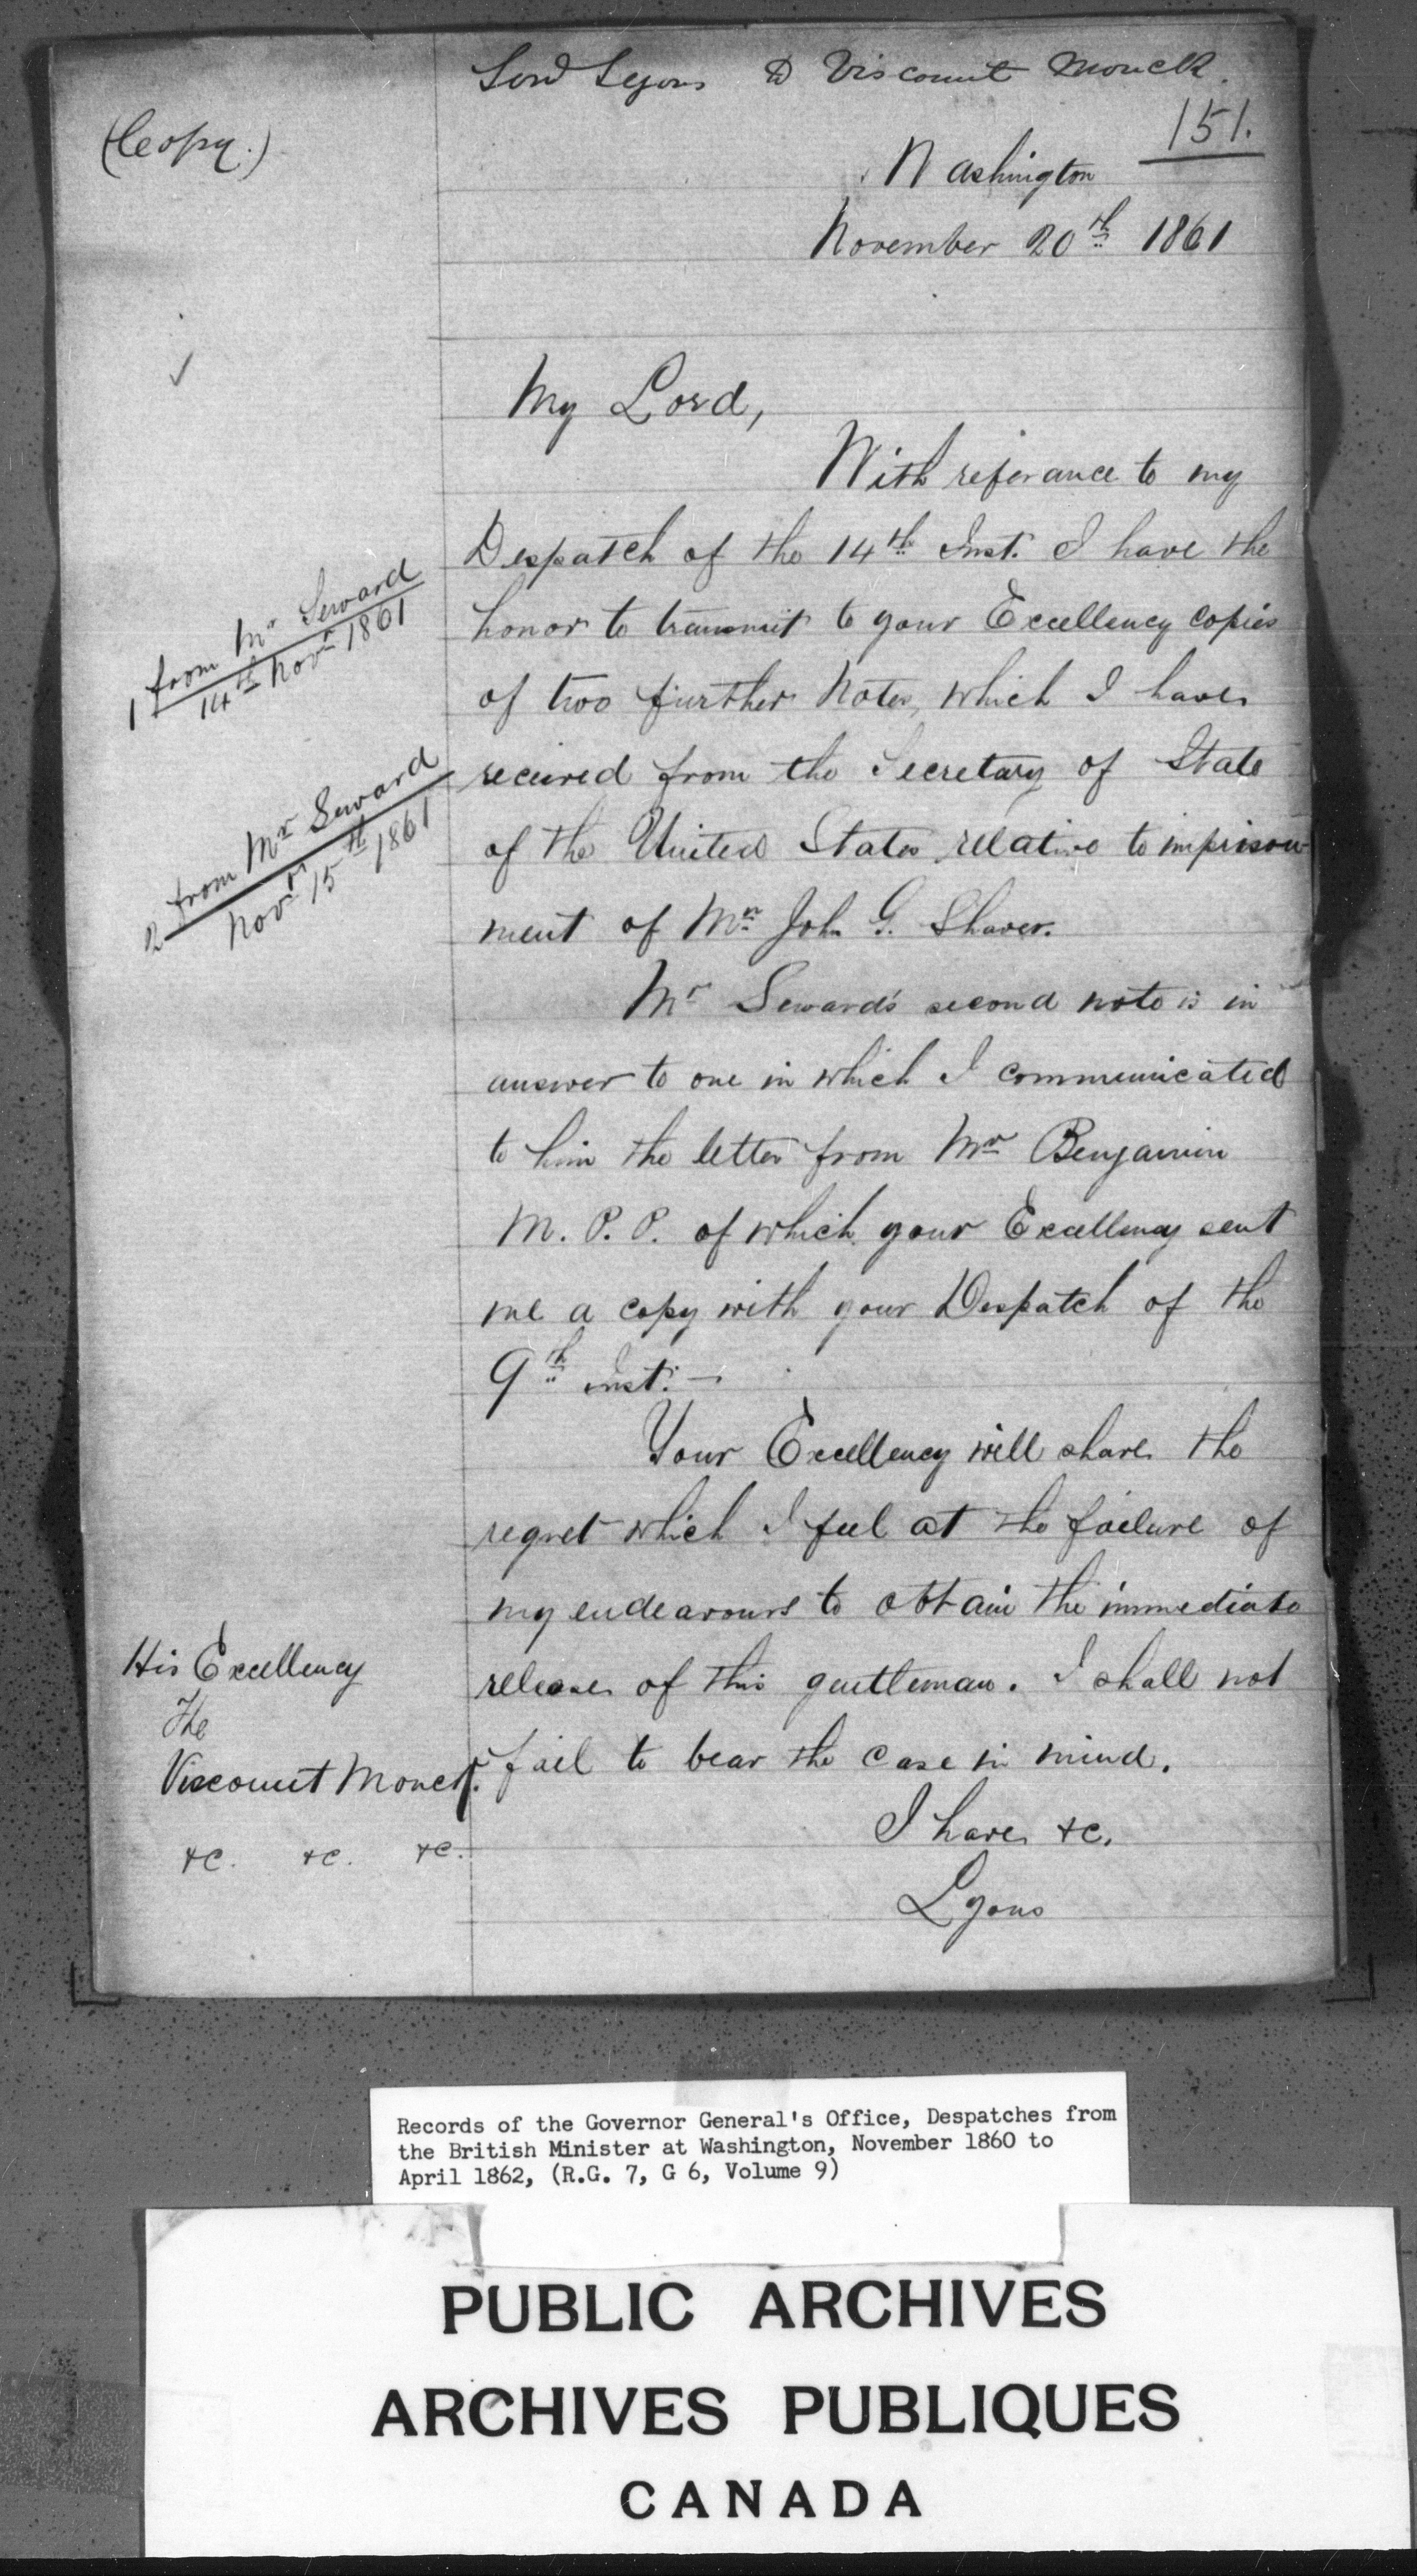 Lord Lyons to Viscount Monck.
(Copy.)
151.
Washington
November 20th 1861
My Lord,
With referance to my
Despatch of the 14th Inst. I have the
honor to transmit to your Excellency copies
of two further Notes, which I have
received from the Secretary of State
of the United States relative to imprison-
ment of Mr. John G. Shaver.
Mr Seward's second note is in
answer to one in which I communicated
to him the letter from Mr Benjamin
M. P. P. of which your Excellency sent
me a copy with your Despatch of the
9th inst. –
Your Excellency will share the
regret which I feel at the failure of
my endeavours to obtain the immediate
release of this gentleman. I shall not
fail to bear the case in mind.
I have &c.
Lyons
1 from Mr Seward
14th Novr 1861
2 from Mr Seward
Novr 15th 1861
His Excellency
The
Viscount Monck.
&c. &c. &c.
Records of the Governor General's Office, Despatches from
the British Minister at Washington, November 1860 to
April 1862, (R.G. 7, G 6, Volume 9)
PUBLIC ARCHIVES
ARCHIVES PUBLIQUES
CANADA